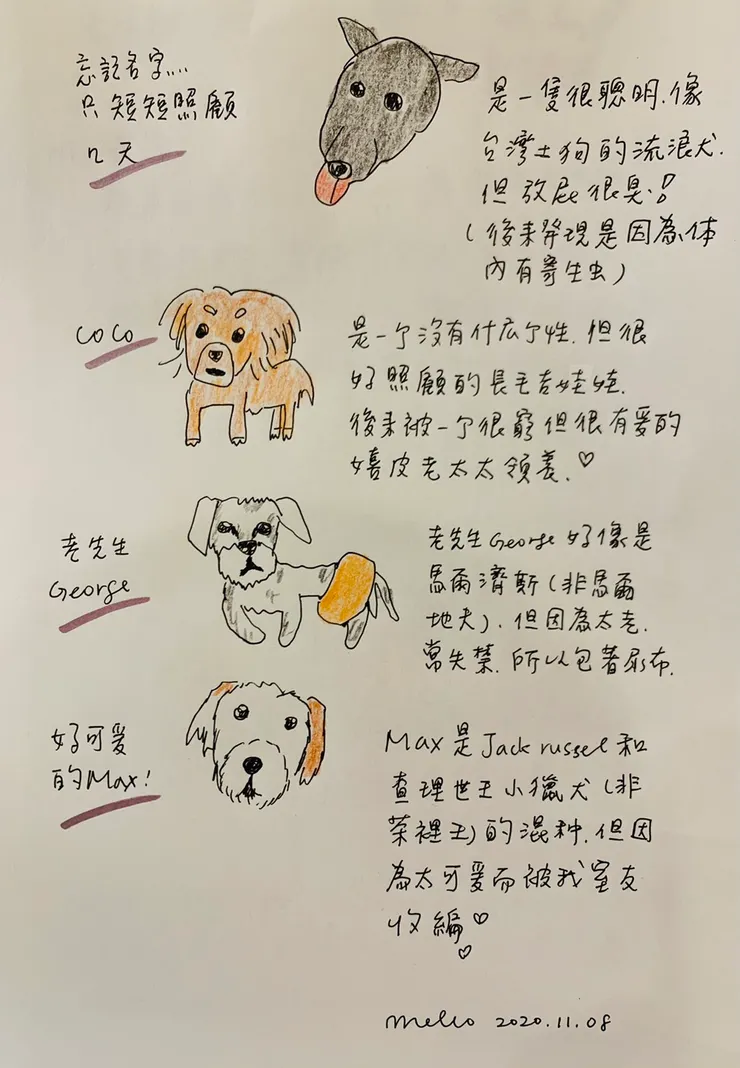 忘記名字....
只短短照顧
几天
是一隻很聰明.像
台灣土狗的流浪犬.
但放屁很臭!
(後來發現是因為体
內有寄生虫)
COCO
是一个沒有什么个性.但很
好照顧的長毛吉娃娃.
後來被一个很窮但很有愛的
嬉皮老太太領養.♡
老先生
George
老先生George好像是
馬爾濟斯(非馬爾
地夫).但因為太老.
常失禁.所以包著尿布.
好可爱
的Max!
Max是Jack russel和
查理世王小獵犬(非
茶裡王)的混种.但因
為太可爱而被我室友
收編♡
♡
meleo 2020.11.08